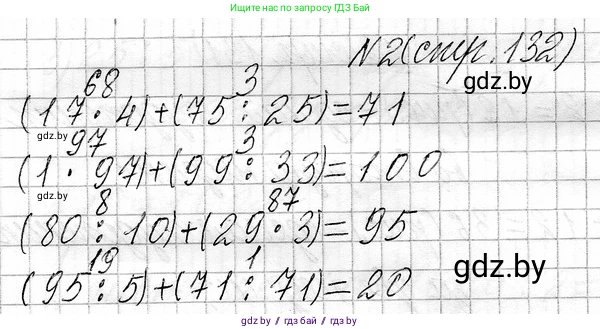 Ищите нас по запросу "ГДЗ Бай"
N2(стр. 132)
68 3
(17·4)+(75:25)=71
gdz.by
97 3
(1·97)+(99:33)=100
gdz.by
8 87
(80:10)+(29·3)=95
19 1
(95:5)+(71:71)=20
gdz.by
gdz.by / гдз бай / gdz by